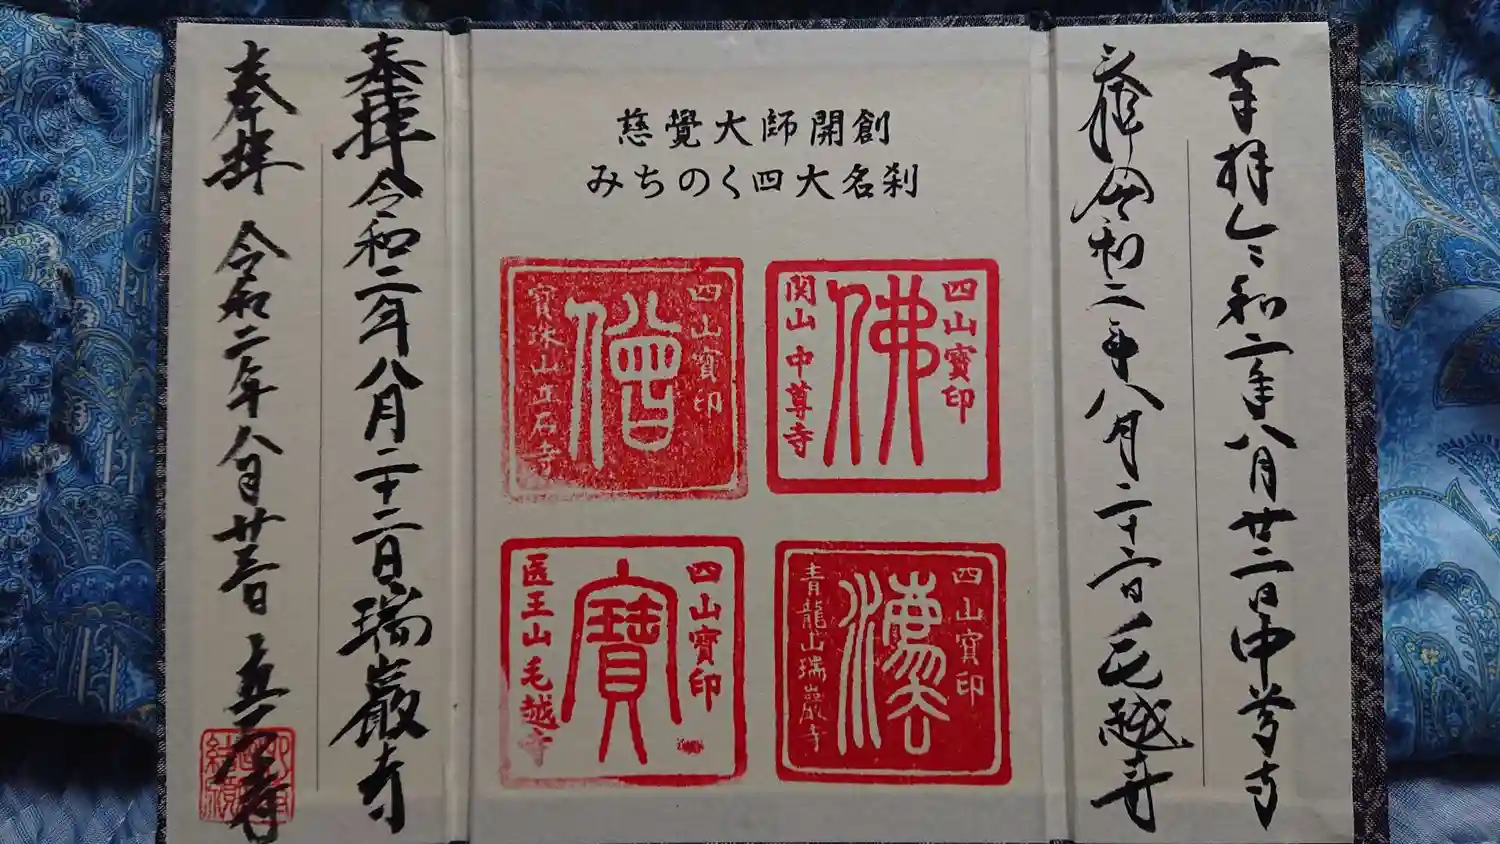 慈覺大師開創
みちのく四大名刹
奉拝 令和二年八月廿二日 中尊寺
奉拝 令和二年八月二十二日 毛越寺
四山寶印
佛
関山中尊寺
四山寶印
僧
寳珠山立石寺
四山寶印
青龍山瑞巖寺
四山寶印
寶
医王山毛越寺
奉拝 令和二年八月二十二日 瑞巌寺
奉拝 令和二年八月廿三日 立石寺